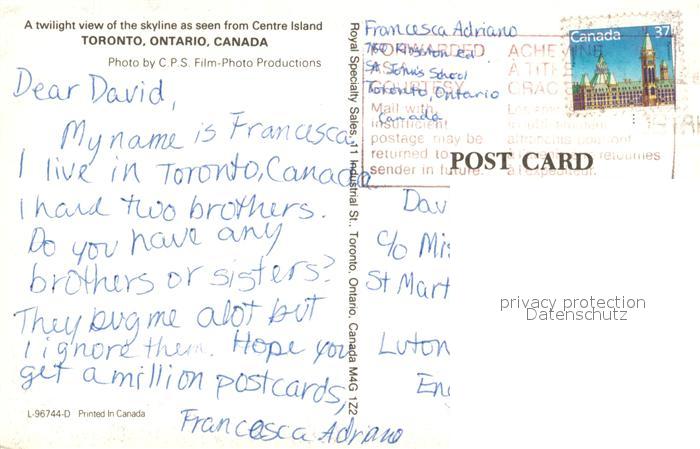 A twilight view of the skyline as seen from Centre Island
TORONTO, ONTARIO, CANADA
Photo by C.P.S. Film-Photo Productions
Dear David,
My name is Francesca
I live in Toronto, Canada
I hand two brothers.
Do you have any
brothers or sisters?
They bug me alot but
I ignore them. Hope you
get a million postcards,
Francesca Adriano
L-96744-D Printed In Canada
Royal Specialty Sales, 11 Industrial St., Toronto, Ontario, Canada M4G 1Z2
Francesca Adriano
Kingston Rd.
St John's School
Toronto, Ontario
Canada
FORWARDED
Mail with
insufficient
postage may be
returned to
sender in future.
ACHEMINE
A TITRE
Canada 37
POST CARD
Dav
c/o Mis
St Mart
Luton
En
privacy protection
Datenschutz